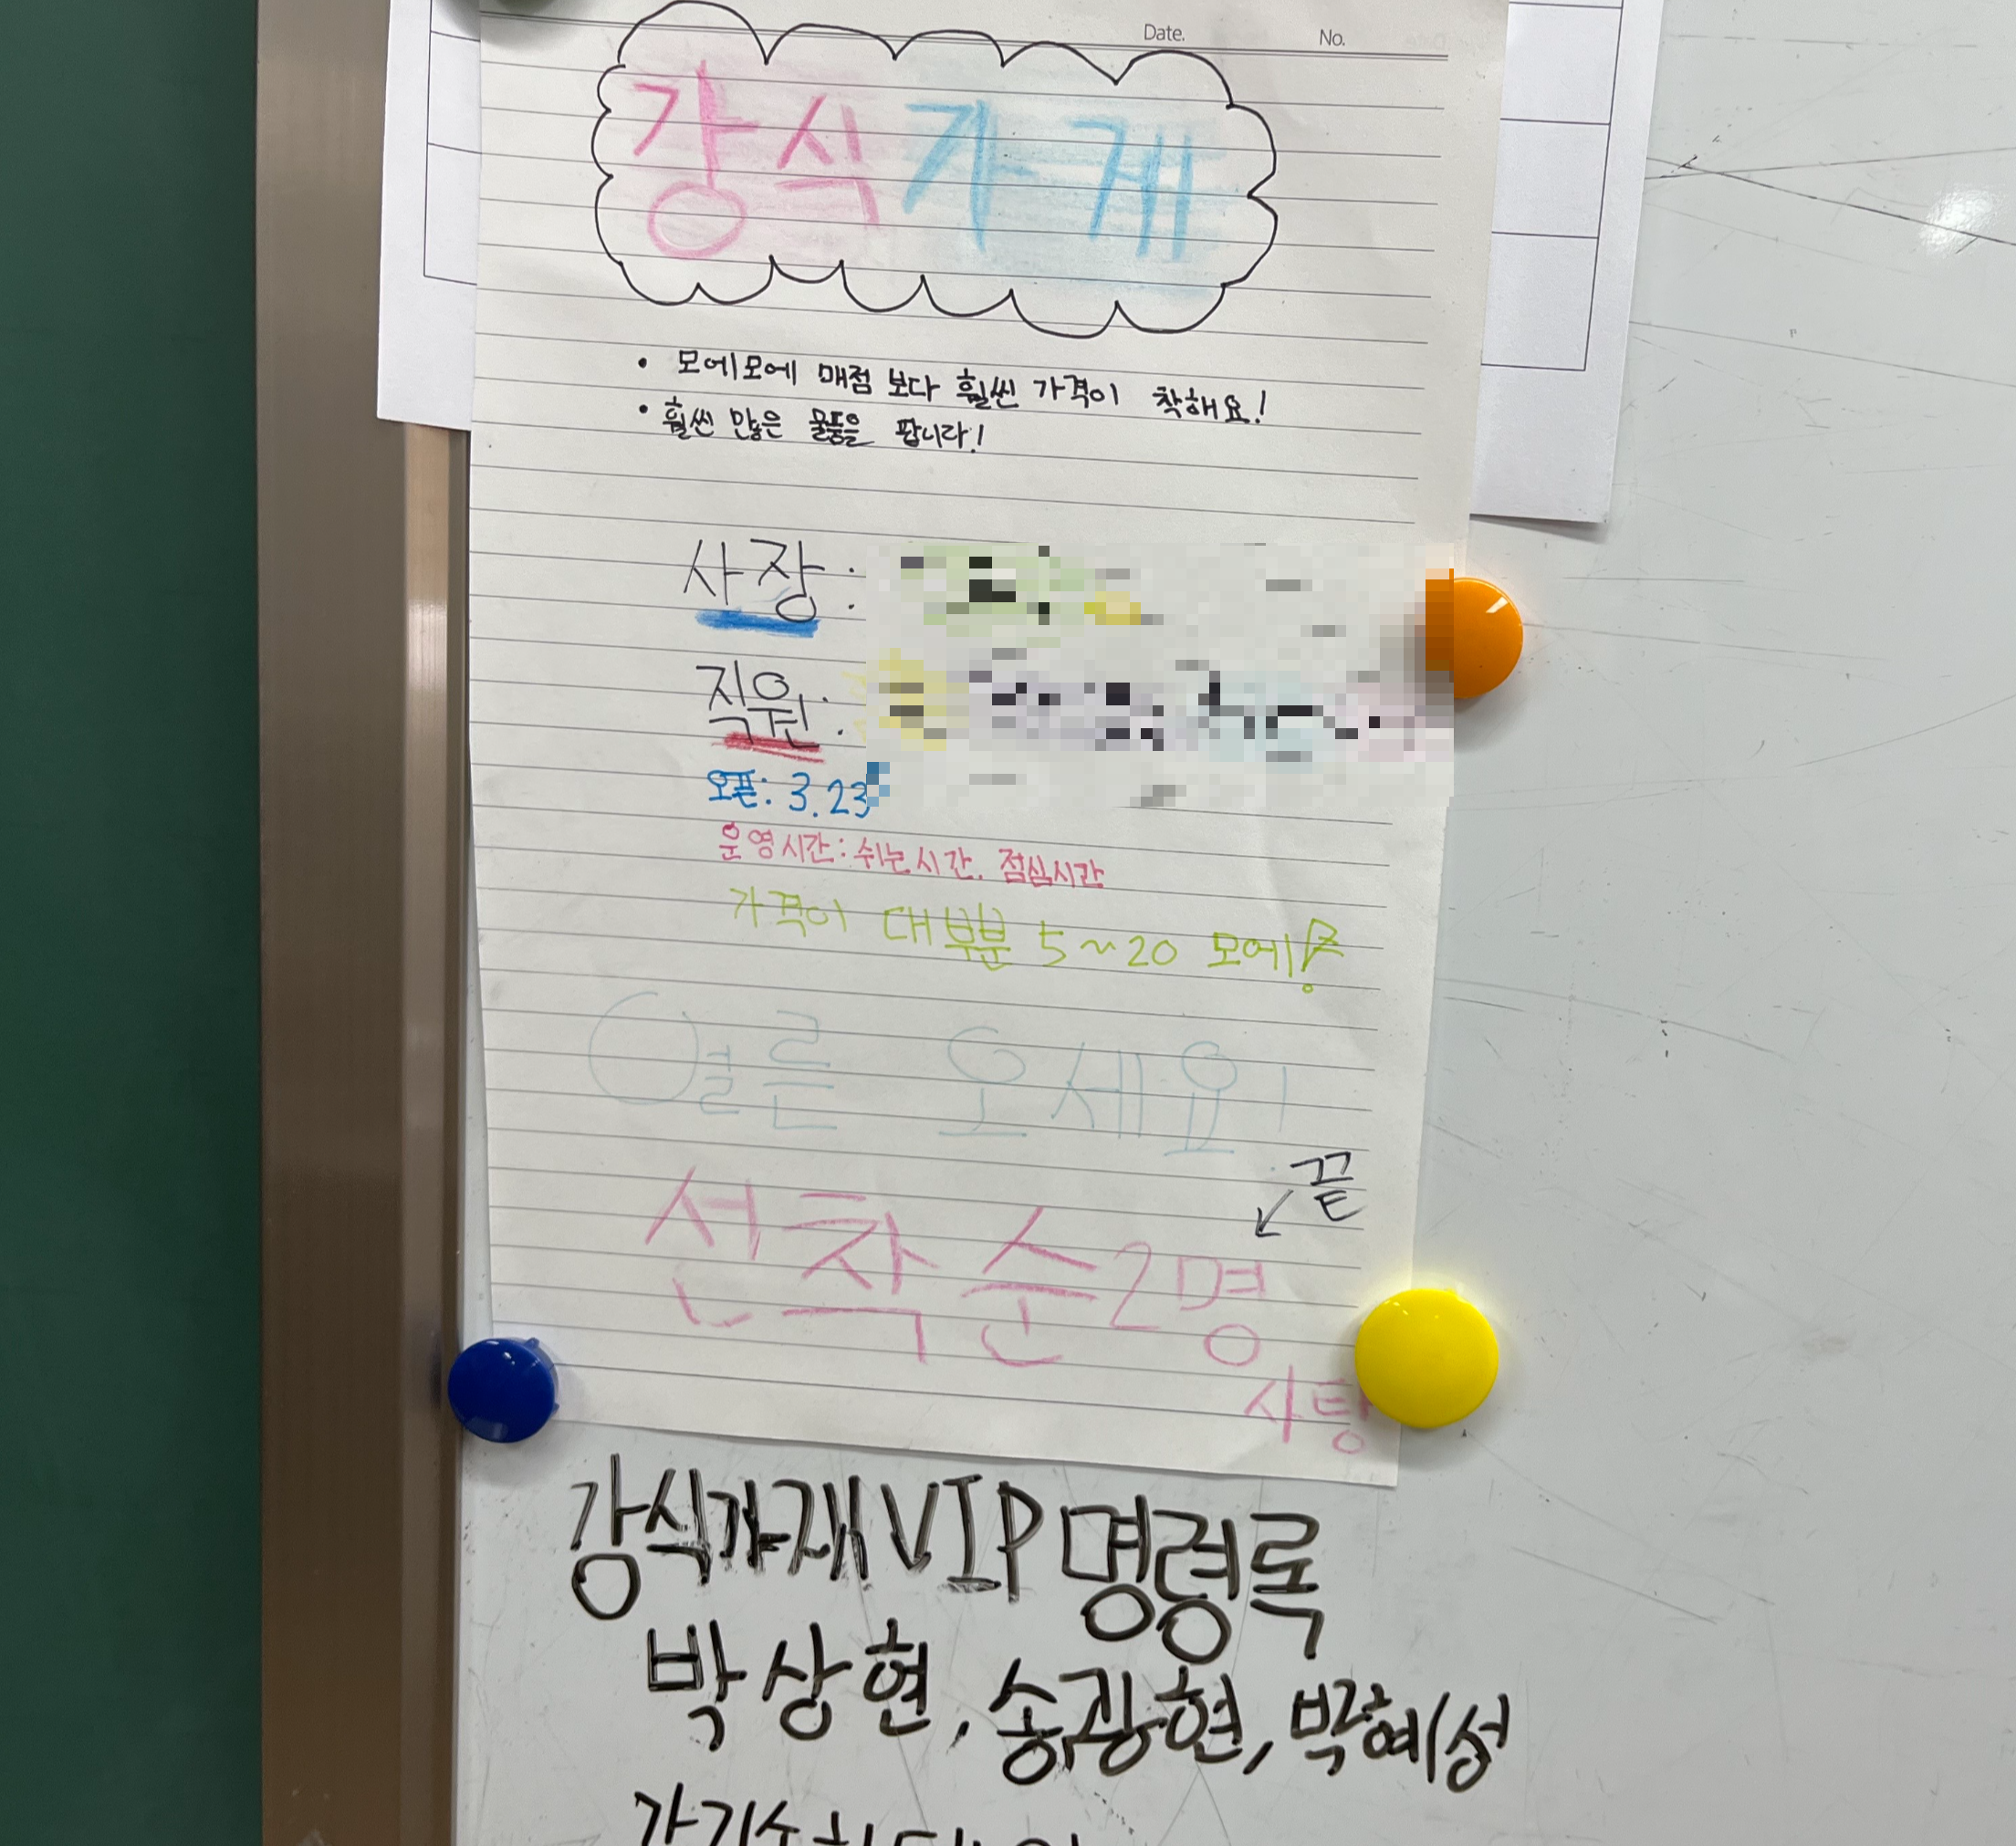 Date. No.
강식가게
• 모에모에 매점 보다 훨씬 가격이 착해요!
• 훨씬 많은 물품을 팝니다!
사장:
직원:
오픈: 3.23
운영시간: 쉬는시간. 점심시간
가격이 대부분 5~20 모에!
얼른 오세요!
끝
선착순2명
사탕
강식가재VIP명령록
박상현, 송광현, 박혜성